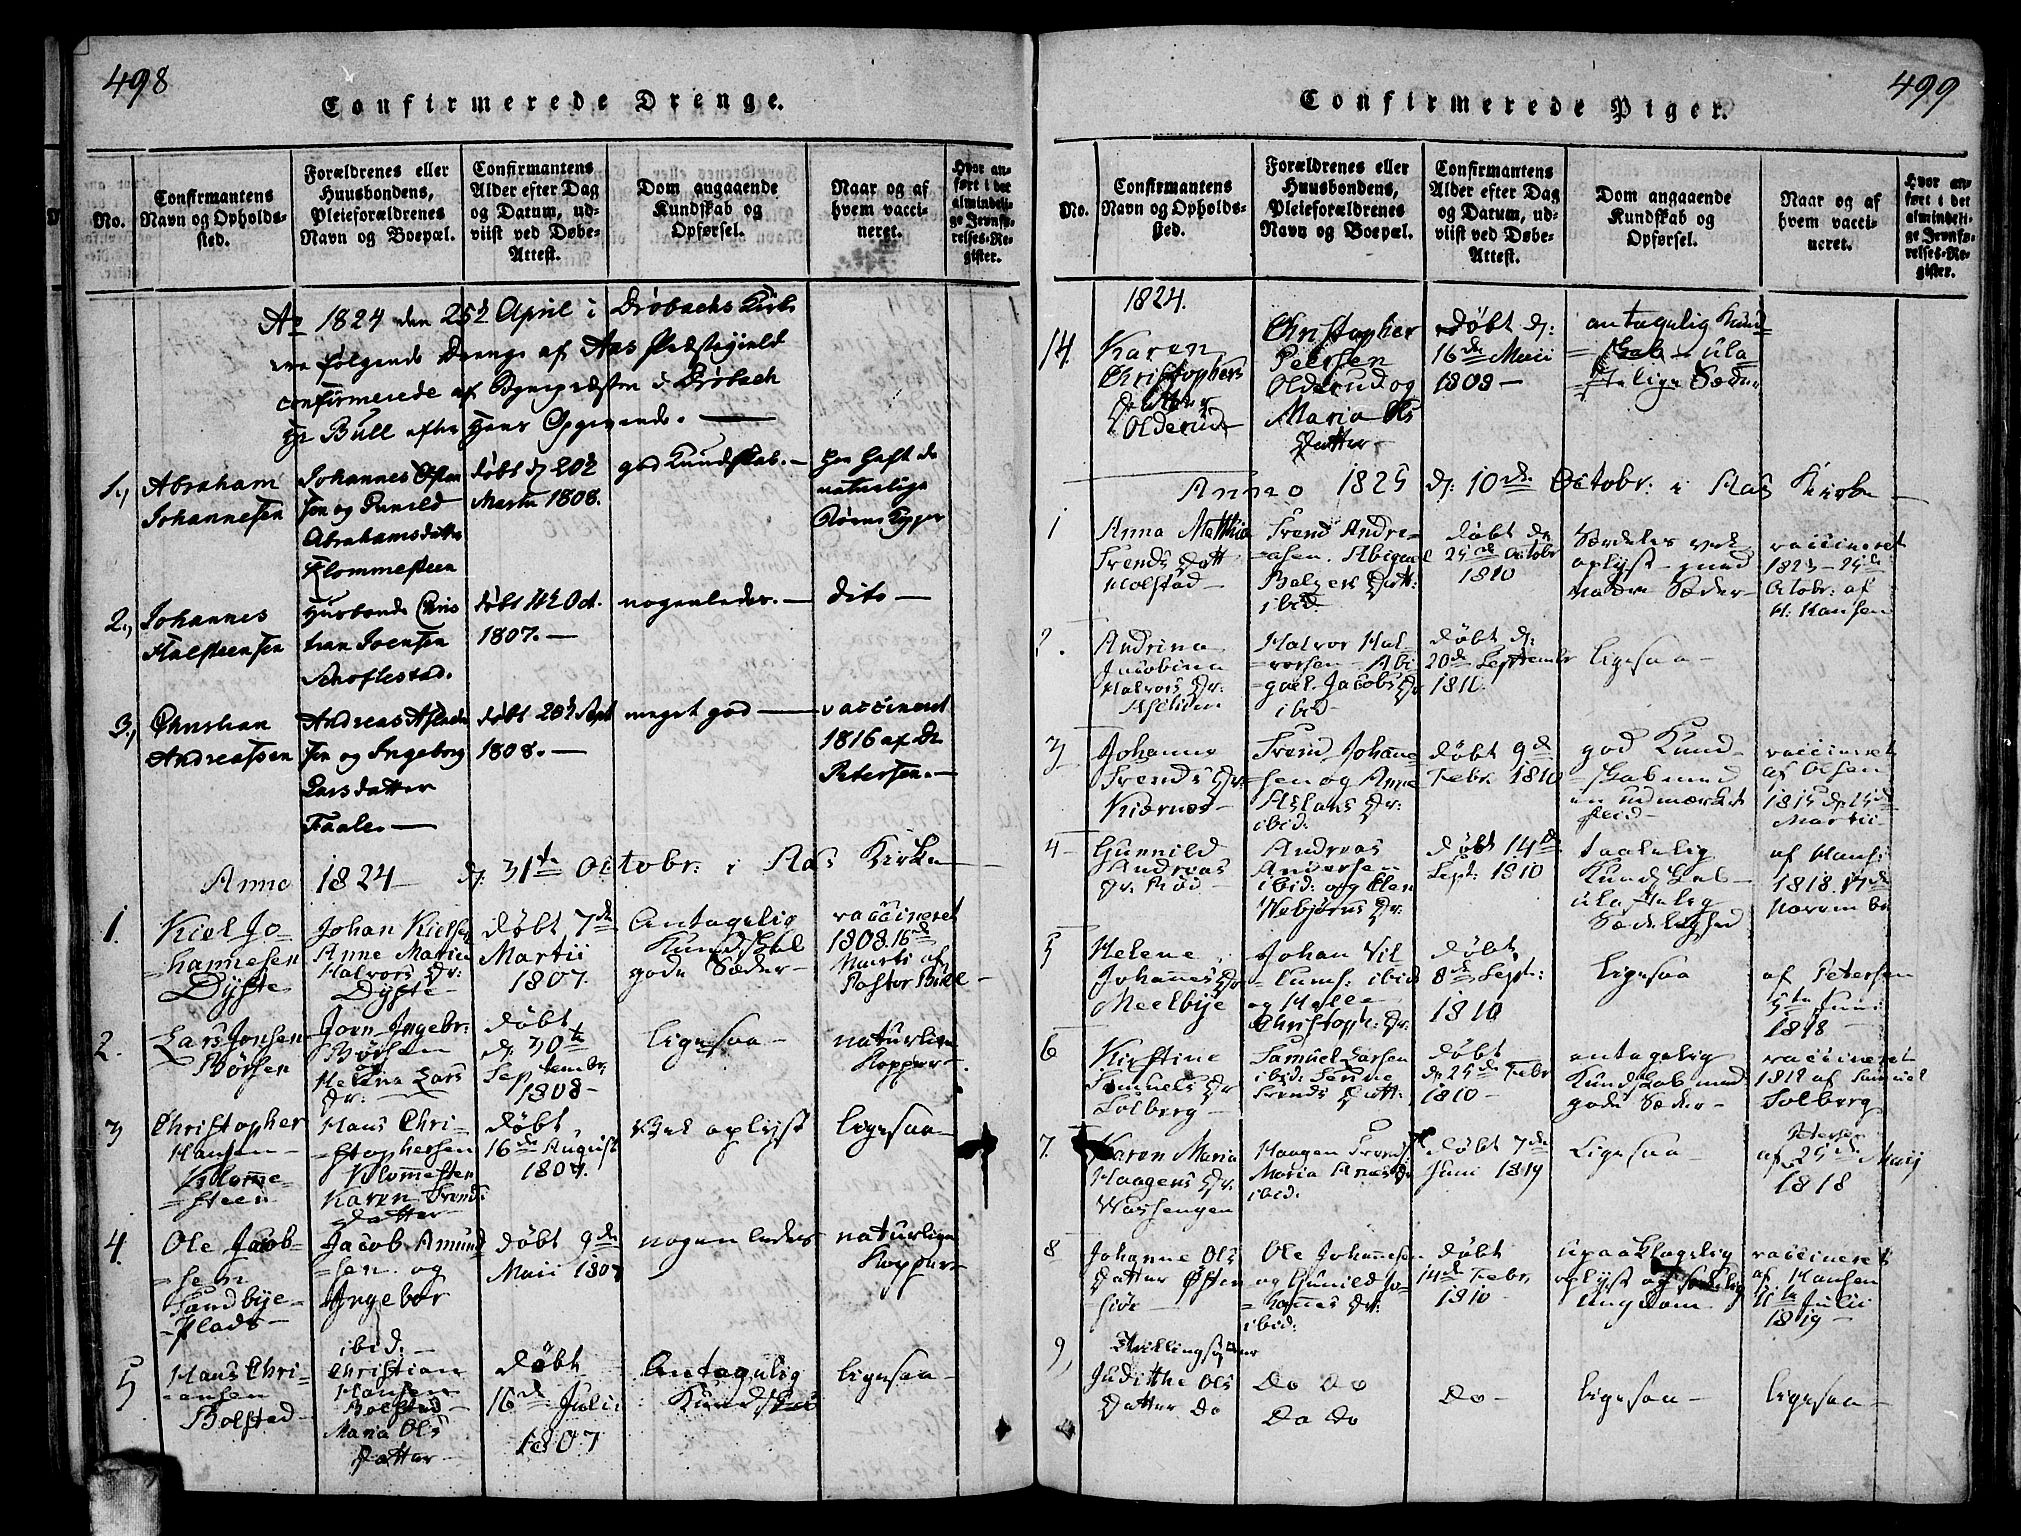 498
Confirmerede Drenge.
No.
Confirmantens
Navn og Opholds-
sted.
Forældrenes eller
Huusbondens,
Pleieforældrenes
Navn og Boepæl.
Confirmantens
Alder efter Dag
og Datum, ud-
viist ved Døbe-
Attest.
Dom angaaende
Kundskab og
Opførsel.
Naar og af
hvem vacci-
neret.
Hvor an-
ført i det
almindeli-
ge Jevnfø-
relses-Re-
gister.
Ao 1824 den 25de April i Drøbachs Kirke
ere følgende Drenge af Aas Præstegield
confirmerede af Sognepræsten i Drøbach
Hr Bull efter Hans Opgivende.
1.)
Abraham
Johannesen
Johannes
sen og Gunild
Abrahamsdatter
Klommesteen
døbt d 20de
Martii 1808.
god Kundskab.
har haft de
naturlige
2.)
Johannes
Halsteensen
Husbonde Chris
tian Joensen
døbt Oct.
1807.
nogenledes.
dito
3.)
Christian
Andreassen
Andreas Aslack
sen og Ingeborg
Larsdatter
Faale.
døbt 28de Sept
1808.
meget god
vaccineret
1816 af Dr
Petersen.
Anno 1824 d: 31te Octobr: i Aas Kirke
1.
Kiel Jo-
hannesen
Dyste
Johan Kielsen
Anne Marie
Halvors Dr:
Dyste
døbt 7de
Martii
1807.
Antagelig
Kundskab
gode Sæder
vaccineret
1808. 16de
Marti af
Pastor Bull
2.
Lars Jonsen
Børsen
Jorn Ingebr:
Børsen
og
Helena Lars
Dr:
døbt
d: 30te
September
1808
ligesaa
naturlige
Kopper
3
Christopher
Hansen
Klomme-
steen
Hans Chri-
stophersen
Klommesten
Karen Trends
Datter
døbt
16de August
1807.
vel oplyst
ligesaa
4.
Ole Jacob-
sen
Sandbye-
Plads
Jacob Amund
sen og
Ingebor
ibid:
døbt 9de
Maii 1807
nogenledes
naturlige
Kopper
5
Hans Chri-
ansen
Bolstad
Christian
Hansen
Bolstad
Maria Ols
Datter
døbt
16de Julii
1807
Antagelig
Kundskab
ligesaa
499
Confirmerede Piger.
No.
Confirmantens
Navn og Opholds-
sted.
Forældrenes eller
Huusbondens,
Pleieforældrenes
Navn og Boepæl.
Confirmantens
Alder efter Dag
og Datum, ud-
viist ved Døbe-
Attest.
Dom angaaende
Kundskab og
Opførsel.
Naar og af
hvem vacci-
neret.
Hvor an-
ført i det
almindeli-
ge Jevnfø-
relses-Re-
gister.
1824.
14
Karen
Christophers
Datter
Olderud
Christopher
Petersen
Olderud og
Maria Ols
Datter
døbt d:
16de Maii
1808
antagelig Kund
skab ula
stelige Sæder
Anno 1825 d: 10de Octobr: i Aas Kirke
1
Anna Mathia
Trends Datt
Holstad
Trend Andre-
asen. Abigael
Balzers Datt:
ibid
døbt den
25de Octobr
1810
Særdeles vel
oplyst med
Sæder
vaccineret
1823 25de
Octobr: af
H: Hansen
2.
Andrina
Jacobina
Halvors Dr:
Halvor Hal-
vorsen Abi
gael. Jacobs Dr
ibid
døbt d:
20de September
1810
ligesaa
3
Johanne
Trends Dr:
Kiærnes
Trend Johanne
sen og Anne
Aslans Dr:
ibid:
døbt 9de
Febr: 1810
god Kund-
skab med
en udmærket
flid
vaccineret
af Olsen
1815 d: 25de
Martii
4
Gunnild
Andreas
Dr: Rød
Andreas
Andersen
ibid: og Elen
Webjørns Dr:
døbt 14de
Sept: 1810
taalelig
Kundskab
ulastelig
Sædelighed
af Hans:
1818. 17de
Novembr
5
Helene
Johannes Dr
Meelbye
Johan Vil
ibid
og Helle
Christoph: Dr:
døbt
8de Sept:
1810
ligesaa
af Petersen
5te Juni
1818
6
Kirstine
Samuels Dr
Solberg
Samuel Larsen
ibid:
Trends Datt:
døbt
d: 25de Febr
1810
antagelig
Kundskab med
gode Sæder
vaccineret
1812 af Samuel
Solberg
7.
Karen Maria
Haagens Dr:
Wassengen
Haagen Trends
Maria Anas Dr
ibid:
døbt 7de
Juni 1819
Ligesaa
Petersen
af 25de Maij
1818
8
Johanne Ols
Datter Østen
siøe
Ole Johannesen
og Gunild Jo-
hannes Dr:
ibid:
døbt
14de Febr
1810
upaaklagelig
oplyst og
Ungdom
vaccineret
af Hansen
Julii
1819
9)
Judithe Ols
Datter Do
Do Do
Do Do
Do
ligesaa
ligesaa